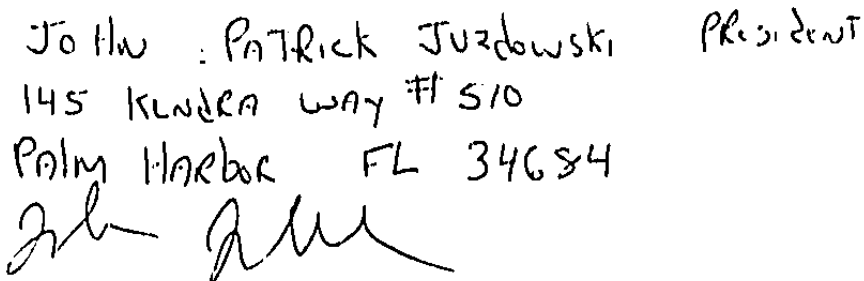 John Patrick Juzdowski President
145 Kendra Way # 510
Palm Harbor FL 34684